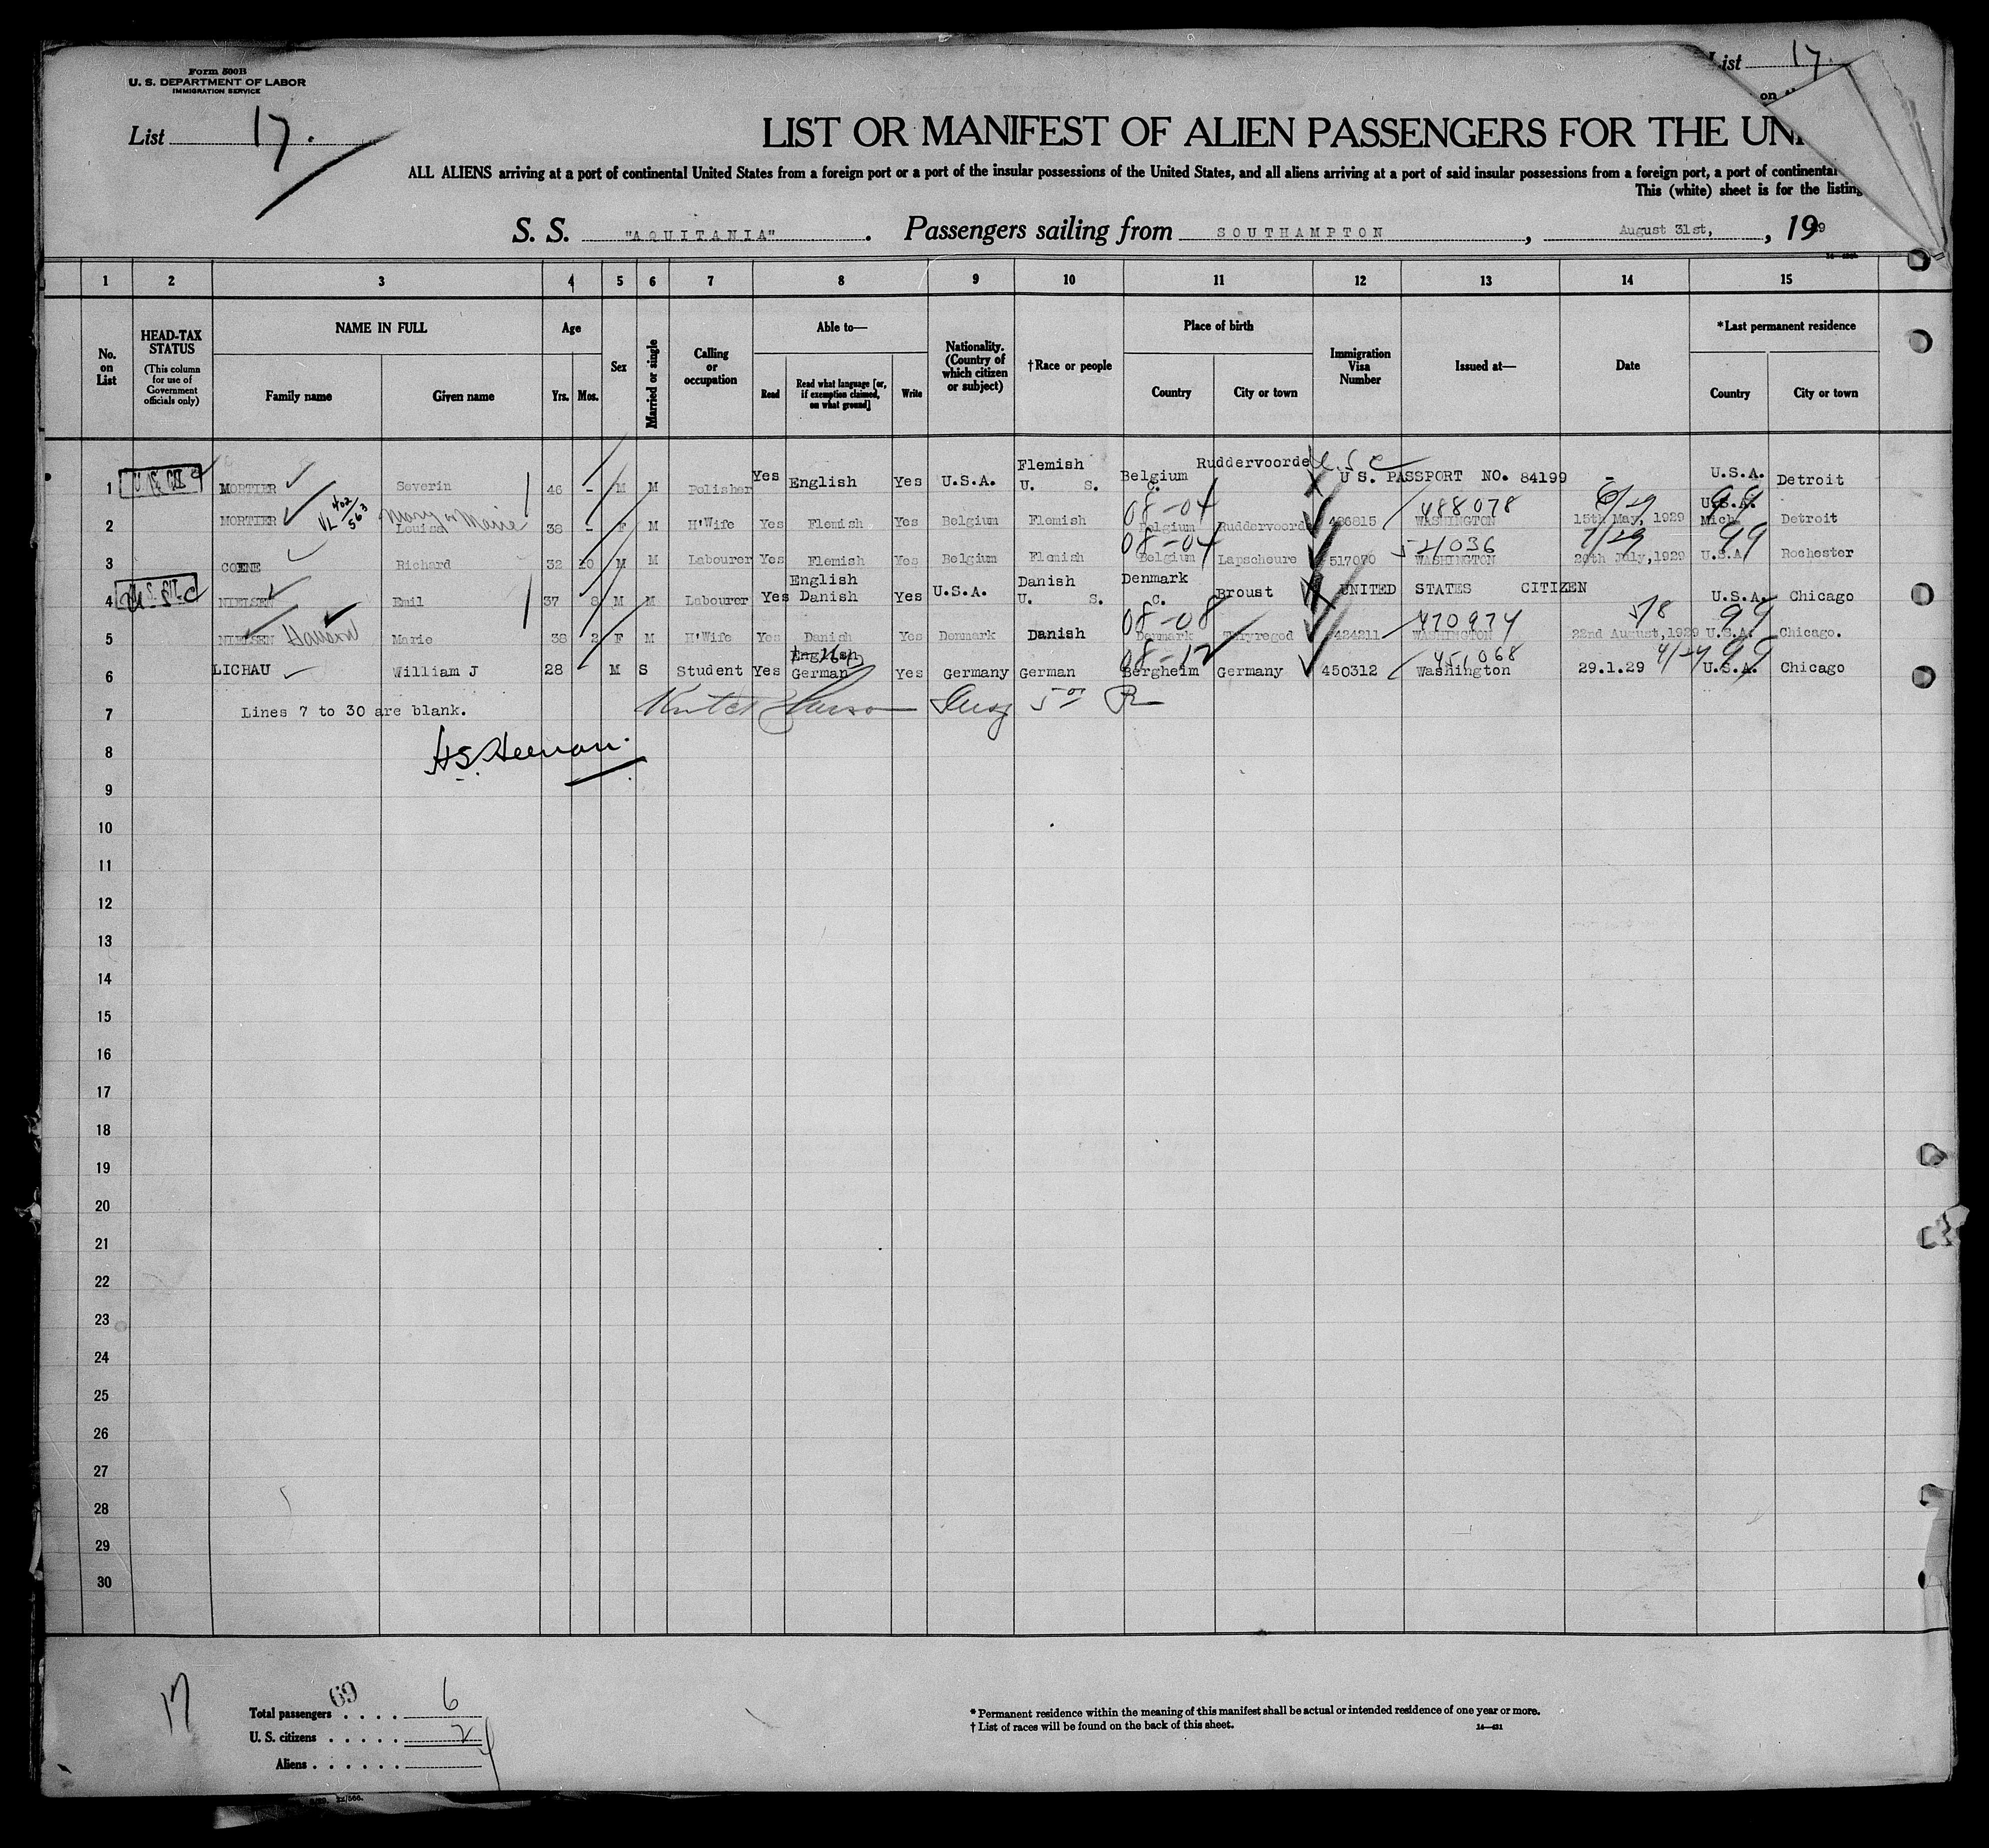 Form 500B
U. S. DEPARTMENT OF LABOR
IMMIGRATION SERVICE
List 17.
List 17.
on
LIST OR MANIFEST OF ALIEN PASSENGERS FOR THE UNI
ALL ALIENS arriving at a port of continental United States from a foreign port or a port of the insular possessions of the United States, and all aliens arriving at a port of said insular possessions from a foreign port, a port of continental
This (white) sheet is for the listing
S. S. "AQUITANIA". Passengers sailing from SOUTHAMPTON, August 31st, , 1929
1 2 3 4 5 6 7 8 9 10 11 12 13 14 15
No. on List
HEAD-TAX STATUS (This column for use of Government officials only)
NAME IN FULL
Family name Given name
Age
Yrs. Mos.
Sex
Married or single
Calling or occupation
Able to—
Read Read what language [or, if exemption claimed, on what ground] Write
Nationality. (Country of which citizen or subject)
†Race or people
Place of birth
Country City or town
Immigration Visa Number
Issued at—
Date
*Last permanent residence
Country City or town
1 MORTIER Severin 46 - M M Polisher Yes English Yes U.S.A. Flemish U. S. C. Belgium Ruddervoorde U.S.C. U S. PASSPORT NO. 84199 - U.S.A. Detroit
2 MORTIER VL 402/563 Mary or Marie Louisa 38 - F M H'Wife Yes Flemish Yes Belgium Flemish 08-04 Belgium Ruddervoorde 486815 488078 WASHINGTON 6/29 15th May, 1929 99 U.S.A. Mich. Detroit
3 COENE Richard 32 10 M M Labourer Yes Flemish Yes Belgium Flemish 08-04 Belgium Lapscheure 517070 521036 WASHINGTON 7/29 20th July,1929 99 U.S.A Rochester
4 U.S.C NIELSEN Emil 37 8 M M Labourer Yes English Danish Yes U.S.A. Danish U. S. C. Denmark Broust UNITED STATES CITIZEN U.S.A. Chicago
5 NIELSEN Hansen Marie 38 2 F M H'Wife Yes Danish Yes Denmark Danish 08-08 Denmark 424211 470974 WASHINGTON 22nd August,1929 99 U.S.A. Chicago.
6 LICHAU William J 28 - M S Student Yes English German Yes Germany German 08-12 Bergheim Germany 450312 451068 Washington 29.1.29 4/29 99 U.S.A. Chicago
7 Lines 7 to 30 are blank.
8
9
10
11
12
13
14
15
16
17
18
19
20
21
22
23
24
25
26
27
28
29
30
17
69
Total passengers . . . . 6
U. S. citizens . . . . . 2
Aliens . . . . . . 4
* Permanent residence within the meaning of this manifest shall be actual or intended residence of one year or more.
† List of races will be found on the back of this sheet.
14—431